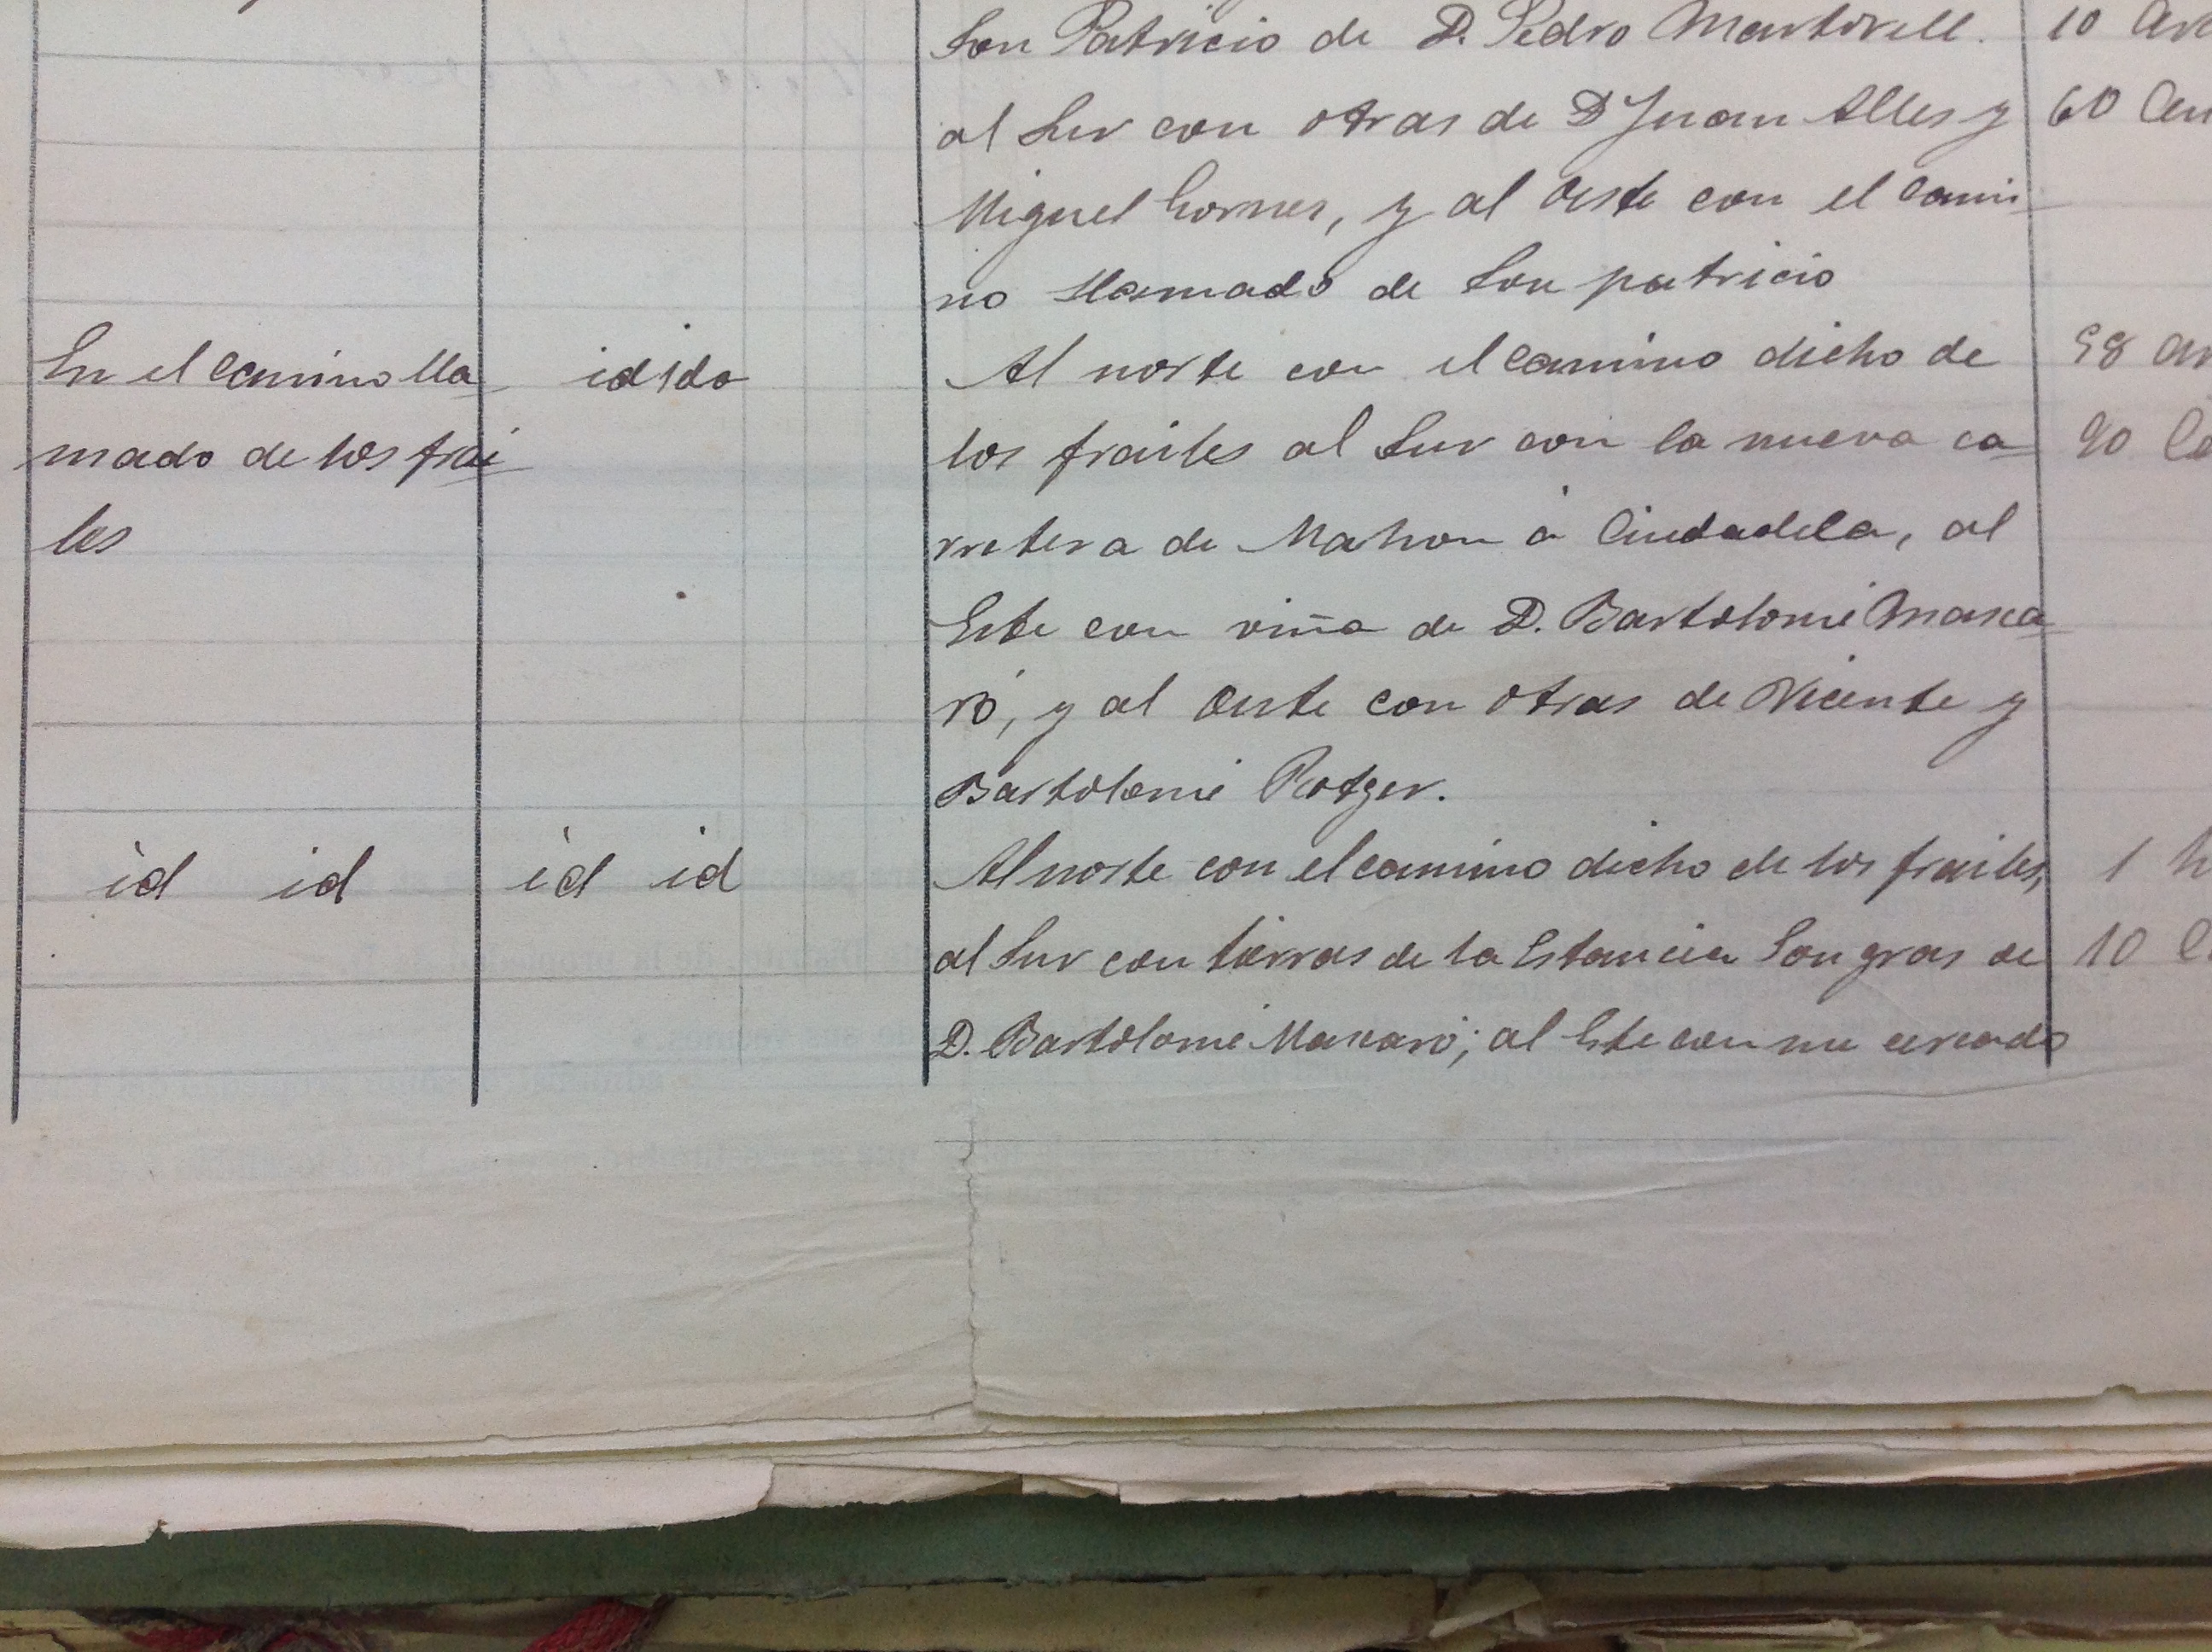 Son Patricio de D. Pedro Martorell. 10
al Sur con otras de D Juan Alles y 60
Miguel Gornes, y al Oeste con el cami-
no llamado de Son patricio
En el camino lla- id ido Al norte con el camino dicho de 98
mado de los frai- los frailes al Sur con la nueva ca- 90
les rretera de Mahon á Ciudadela, al
Este con viña de D. Bartolomé Masca-
ró, y al Oeste con otras de Vicente y
Bartolomé Rotger.
id id id id Al norte con el camino dicho de los frailes, 1
al Sur con tierras de la Estancia Son gras de 10
D. Bartolomé Mascaró; al Este con un cercado